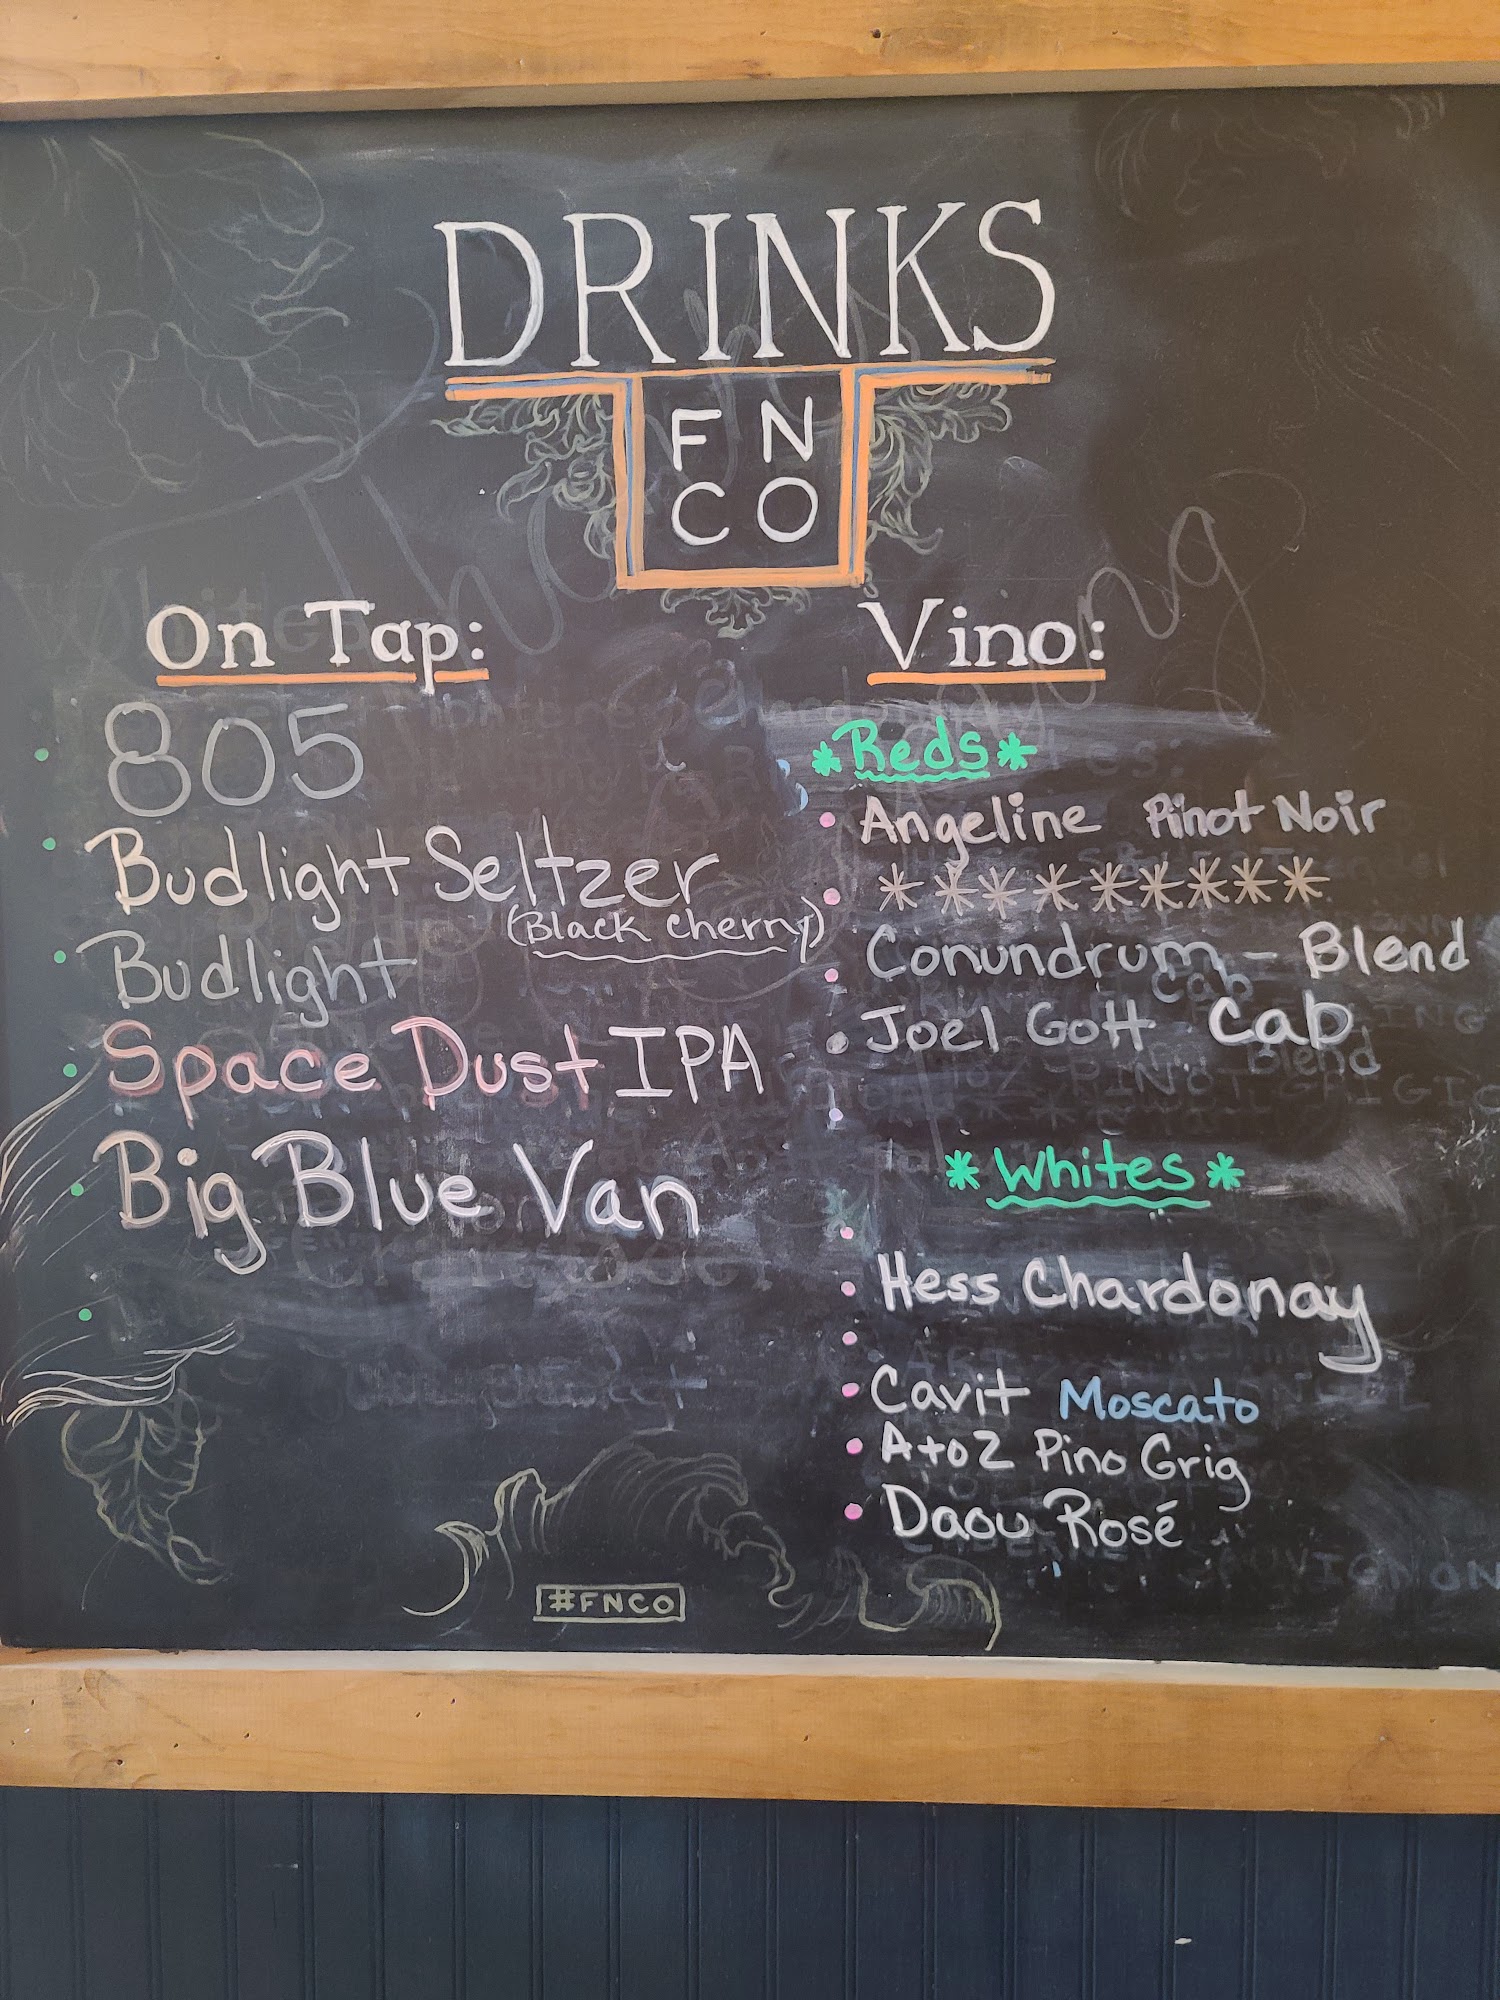 DRINKS
F N
C O
On Tap:
805
Budlight Seltzer
(Black Cherry)
Budlight
Space Dust IPA
Big Blue Van
Vino:
*Reds*
Angeline Pinot Noir
*********
Conundrum - Blend
Joel Gott Cab
*Whites*
Hess Chardonay
Cavit Moscato
A to Z Pino Grig
Daou Rosé
#FNCO